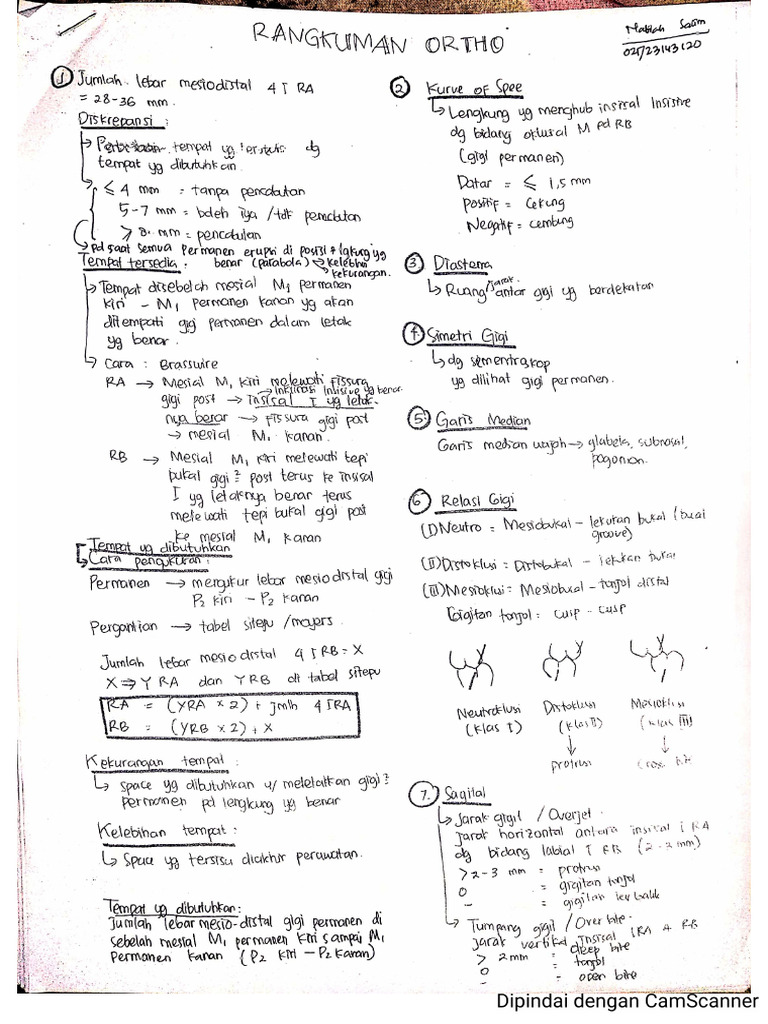 RANGKUMAN ORTHO
Nabilah Salim
① Jumlah lebar mesiodistal 4 I RA
= 28-36 mm.
Diskrepansi :
tempat yg tersedia dg
tempat yg dibutuhkan
≤ 4 mm = tanpa pencabutan
5-7 mm = boleh iya / tdk pencabutan
8 mm = pencabutan
pd saat semua permanen erupsi di posisi & lgkung yg
benar (parabola) → kelebihan
kekurangan.
Tempat tersedia :
Tempat disebelah mesial M₁ permanen
kiri - M₁ permanen kanan yg akan
ditempati gigi permanen dalam letak
yg benar.
Cara : Brasswire
RA → Mesial M₁ kiri melewati fissura
gigi post → insisal I yg letak-
→ inklinasi insisive yg benar
nya benar → fissura gigi post
→ mesial M₁ kanan.
RB → Mesial M₁ kiri melewati tepi
bukal gigi² post terus ke insisal
I yg letaknya benar terus
melewati tepi bukal gigi post
ke mesial M₁ kanan
Tempat yg dibutuhkan
Cara pengukuran :
Permanen → mengukur lebar mesiodistal gigi
P₂ kiri - P₂ kanan
Pergantian → tabel sitepu / moyers
Jumlah lebar mesiodistal 4 I RB = X
X ⇒ Y RA dan Y RB di tabel sitepu
RA = (YRA x 2) + jmlh 4 I RA
RB = (YRB x 2) + X
Kekurangan tempat :
Space yg dibutuhkan u/ meletakkan gigi²
permanen pd lengkung yg benar
Kelebihan tempat :
Space yg tersisa diakhir perawatan.
Tempat yg dibutuhkan:
Jumlah lebar mesio-distal gigi permanen di
sebelah mesial M₁ permanen kiri sampai M₁
permanen kanan (P₂ kiri - P₂ kanan)
② Kurve of Spee
Lengkung yg menghub insisal Insisive
dg bidang oklusal M pd RB
(gigi permanen)
Datar = ≤ 1,5 mm
Positif = cekung
Negatif = cembung
③ Diastema
Ruang/jarak antar gigi yg berdekatan
④ Simetri Gigi
dg simentraskop
yg dilihat gigi permanen.
⑤ Garis Median
Garis median wajah → glabela, subnasal,
pogonion.
⑥ Relasi Gigi
(I) Neutro = Mesiobukal - lekukan bukal (bucal
groove)
(II) Distoklusi = Distobukal - lekukan bukal
(III) Mesioklusi = Mesiobukal - tonjol distal
Gigitan tonjol = cusp - cusp
Neutroklusi
(klas I)
Distoklusi
(klas II)
↓
protrusi
Mesioklusi
(klas III)
↓
cross bite
7. Sagital
Jarak gigit / Overjet.
Jarak horizontal antara insisal I RA
dg bidang labial I RB (2-3 mm)
> 2-3 mm = protrusi
0 = gigitan tonjol
- = gigitan terbalik
Tumpang gigit / Overbite.
jarak vertikal insisal I RA & RB
> 2mm = deep bite
0 = tonjol
- = open bite
Dipindai dengan CamScanner